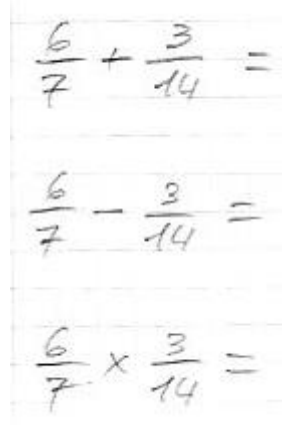 6/7 + 3/14 =
6/7 - 3/14 =
6/7 × 3/14 =